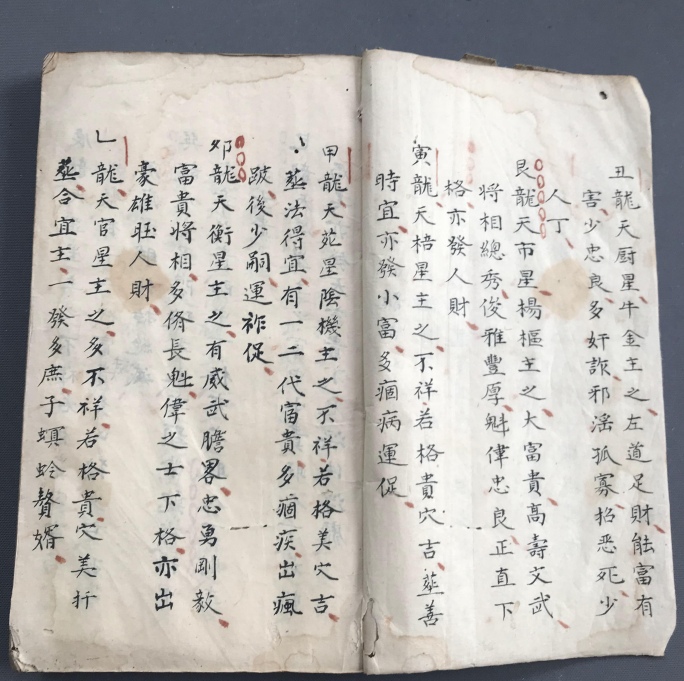 丑龍天厨星牛金主之左道足財能富有
害少忠良多奸詐邪淫孤寡招惡死少
人丁
艮龍天市星楊樞主之大富貴高壽文武
将相總秀俊雅豐厚魁偉忠良正直下
格亦發人財
寅龍天棓星主之不祥若格貴穴吉塟善
時宜亦發小富多痼病運促
甲龍天苑星陰機主之不祥若格美穴吉
塟法得宜有一二代富貴多痼疾出瘋
跛後少嗣運祚促
夘龍天衡星主之有威武膽畧忠勇剛毅
富貴將相多脩長魁偉之士下格亦出
豪雄旺人財
乚龍天官星主之多不祥若格貴穴美扦
塟合宜主一發多庶子螟蛉贅婿